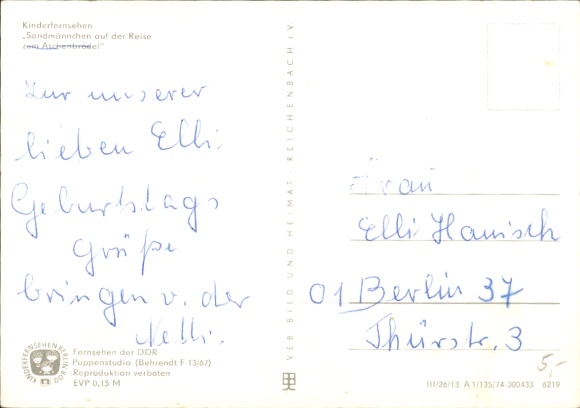 Kinderfernsehen
„Sandmännchen auf der Reise
zum Aschenbrödel"
Zur unserer
lieben Elli.
Geburtstags
Grüße
bringen v. der
Nelli.
KINDERFERNSEHEN BERLIN DDR
Fernsehen der DDR
Puppenstudio (Behrendt F 13/67)
Reproduktion verboten
EVP 0,15 M
VEB BILD UND HEIMAT · REICHENBACH i. V.
Frau
Elli Hanisch
01 Berlin 37
Thürstr. 3
5,-
III/26/13 A 1/135/74-300433 6219